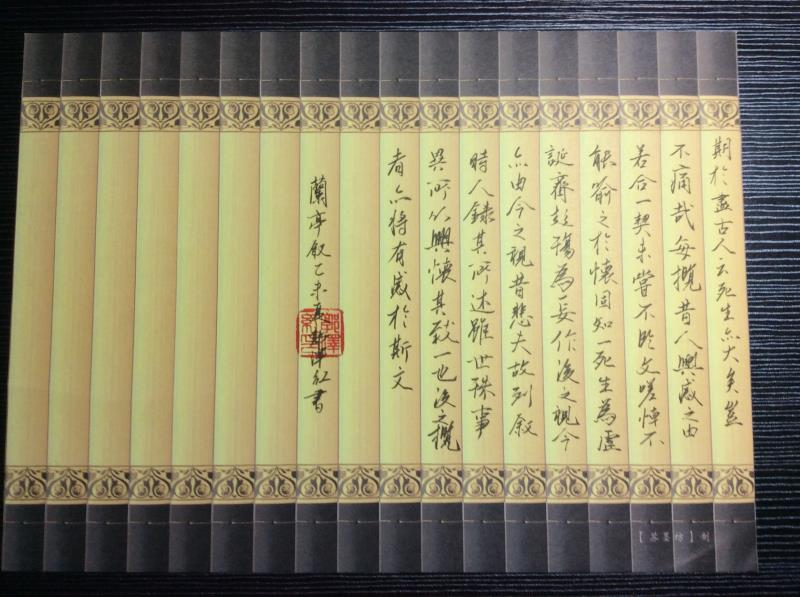 期於盡古人云死生亦大矣豈
不痛哉每攬昔人興感之由
若合一契未嘗不臨文嗟悼不
能喻之於懷固知一死生為虛
誕齊彭殤為妄作後之視今
亦由今之視昔悲夫故列叙
時人錄其所述雖世殊事
異所以興懷其致一也後之攬
者亦將有感於斯文
蘭亭叙乙未夏紅書
墨坊】制